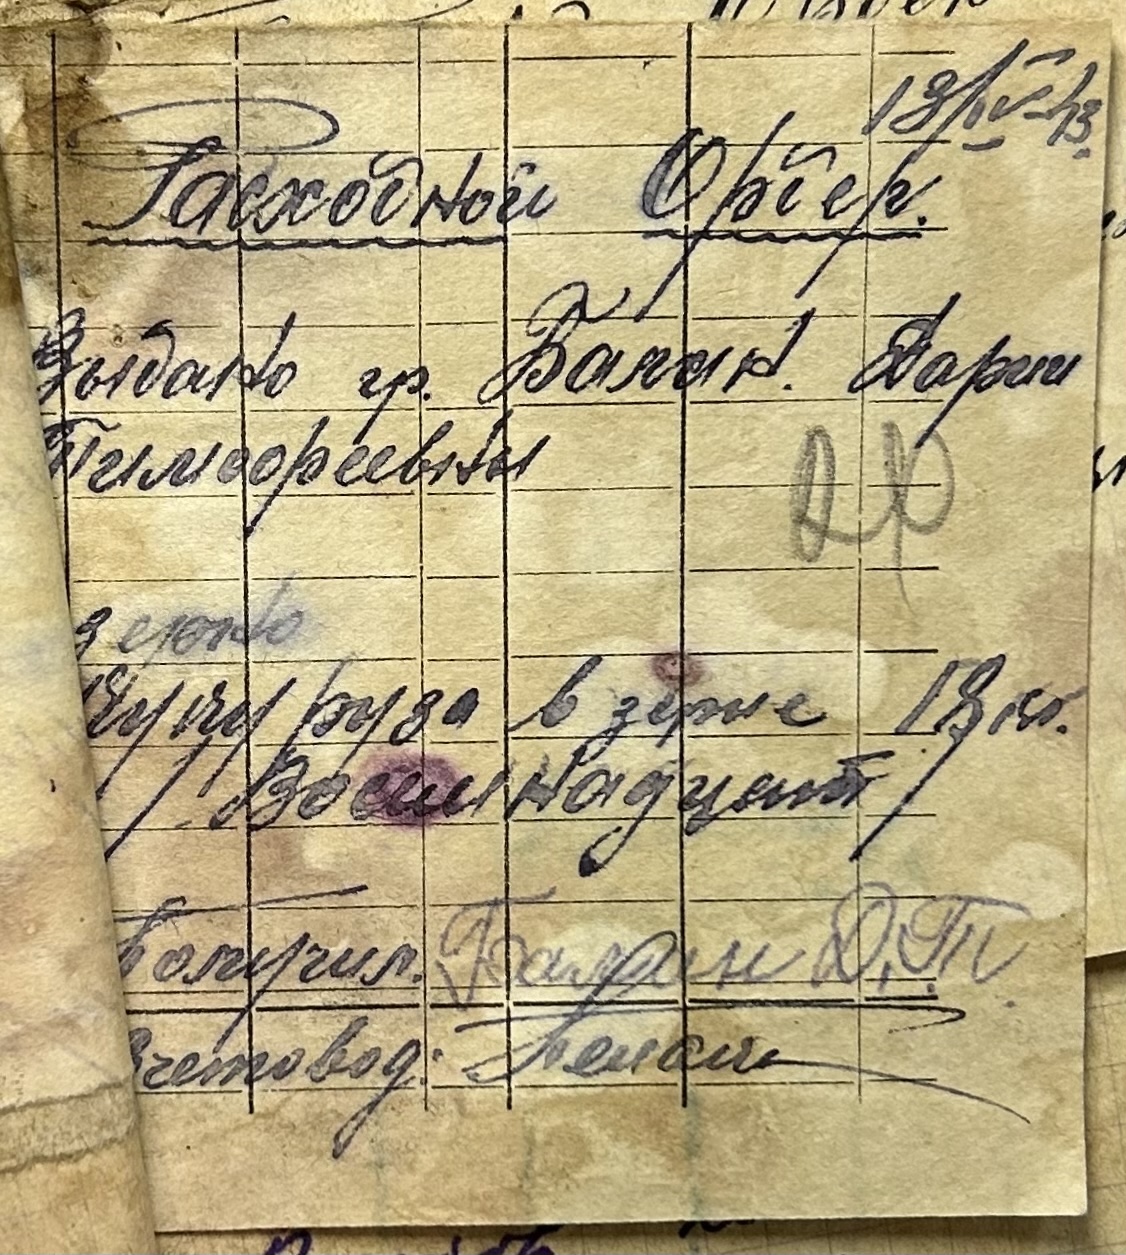 18/IV-43
Расходной Ордер.
Выдано гр. Балан. Дарии
Тимофеевны
зерно
Кукуруза в зерне 18 кг.
Восемнадцат
Получил. Балан Д.Т.
Счетовод: